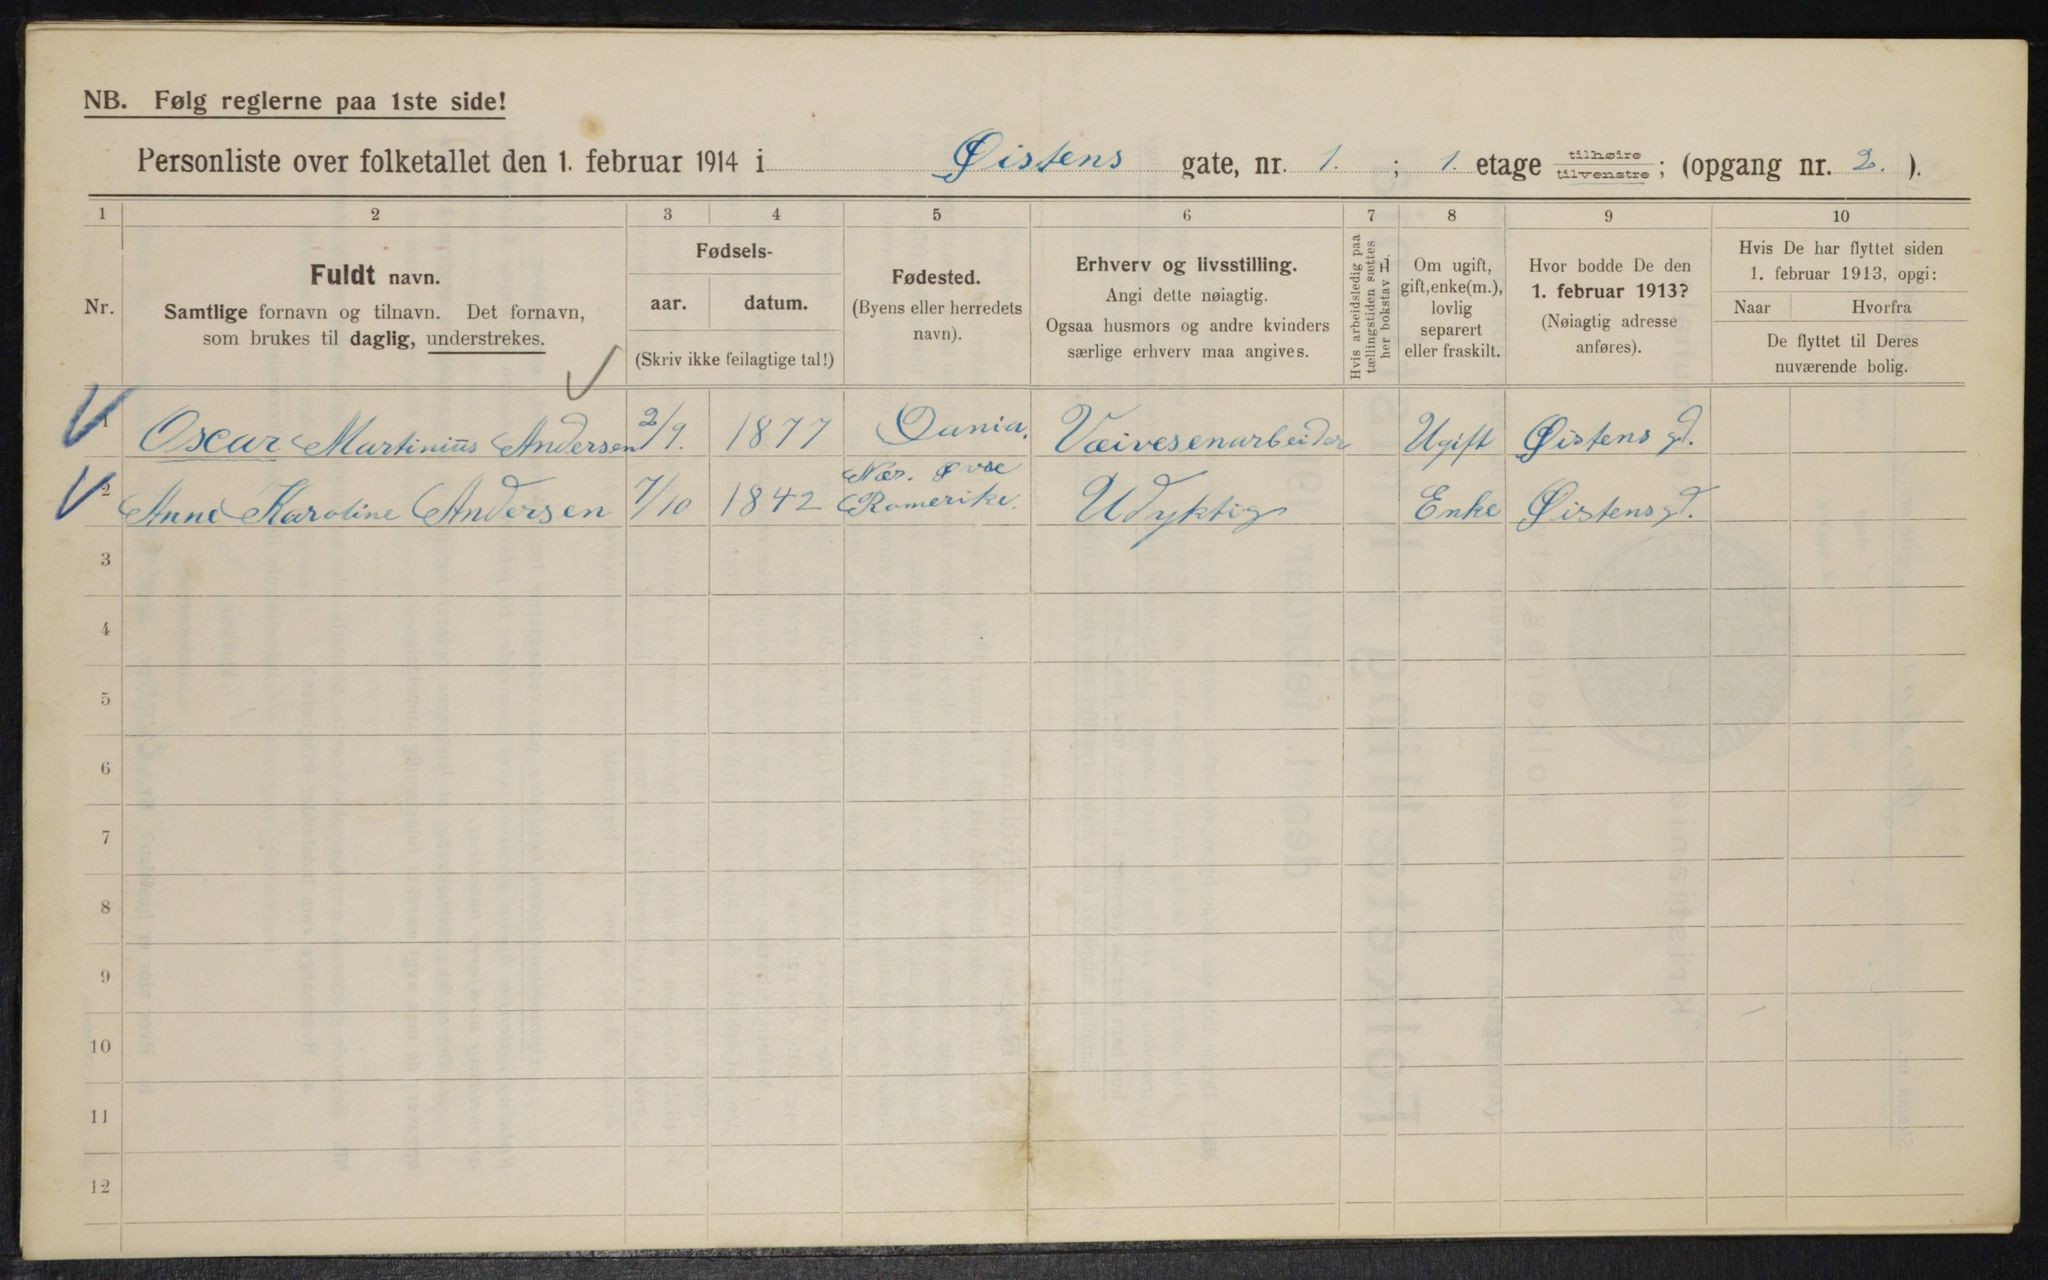 NB. Følg reglerne paa 1ste side!
Personliste over folketallet den 1. februar 1914 i Øistens gate, nr. 1. ; 1. etage tilhøire tilvenstre ; (opgang nr. 2. ).
1 2 3 4 5 6 7 8 9 10
Nr.
Fuldt navn.
Samtlige fornavn og tilnavn. Det fornavn,
som brukes til daglig, understrekes.
Fødsels-
aar. datum.
(Skriv ikke feilagtige tal!)
Fødested.
(Byens eller herredets
navn).
Erhverv og livsstilling.
Angi dette nøiagtig.
Ogsaa husmors og andre kvinders
særlige erhverv maa angives.
Hvis arbeidsledig paa
tællingstiden sættes
her bokstav H.
Om ugift,
gift, enke(m.),
lovlig
separert
eller fraskilt.
Hvor bodde De den
1. februar 1913?
(Nøiagtig adresse
anføres).
Hvis De har flyttet siden
1. februar 1913, opgi:
Naar Hvorfra
De flyttet til Deres
nuværende bolig.
1 Oscar Martinius Andersen 2/9. 1877 Dania. Væivesenarbeider Ugift Øistens gd.
2 Anne Karoline Andersen 7/10 1842 Nær. Øvre Romerike. Udyktig Enke Øistens gd.
3
4
5
6
7
8
9
10
11
12